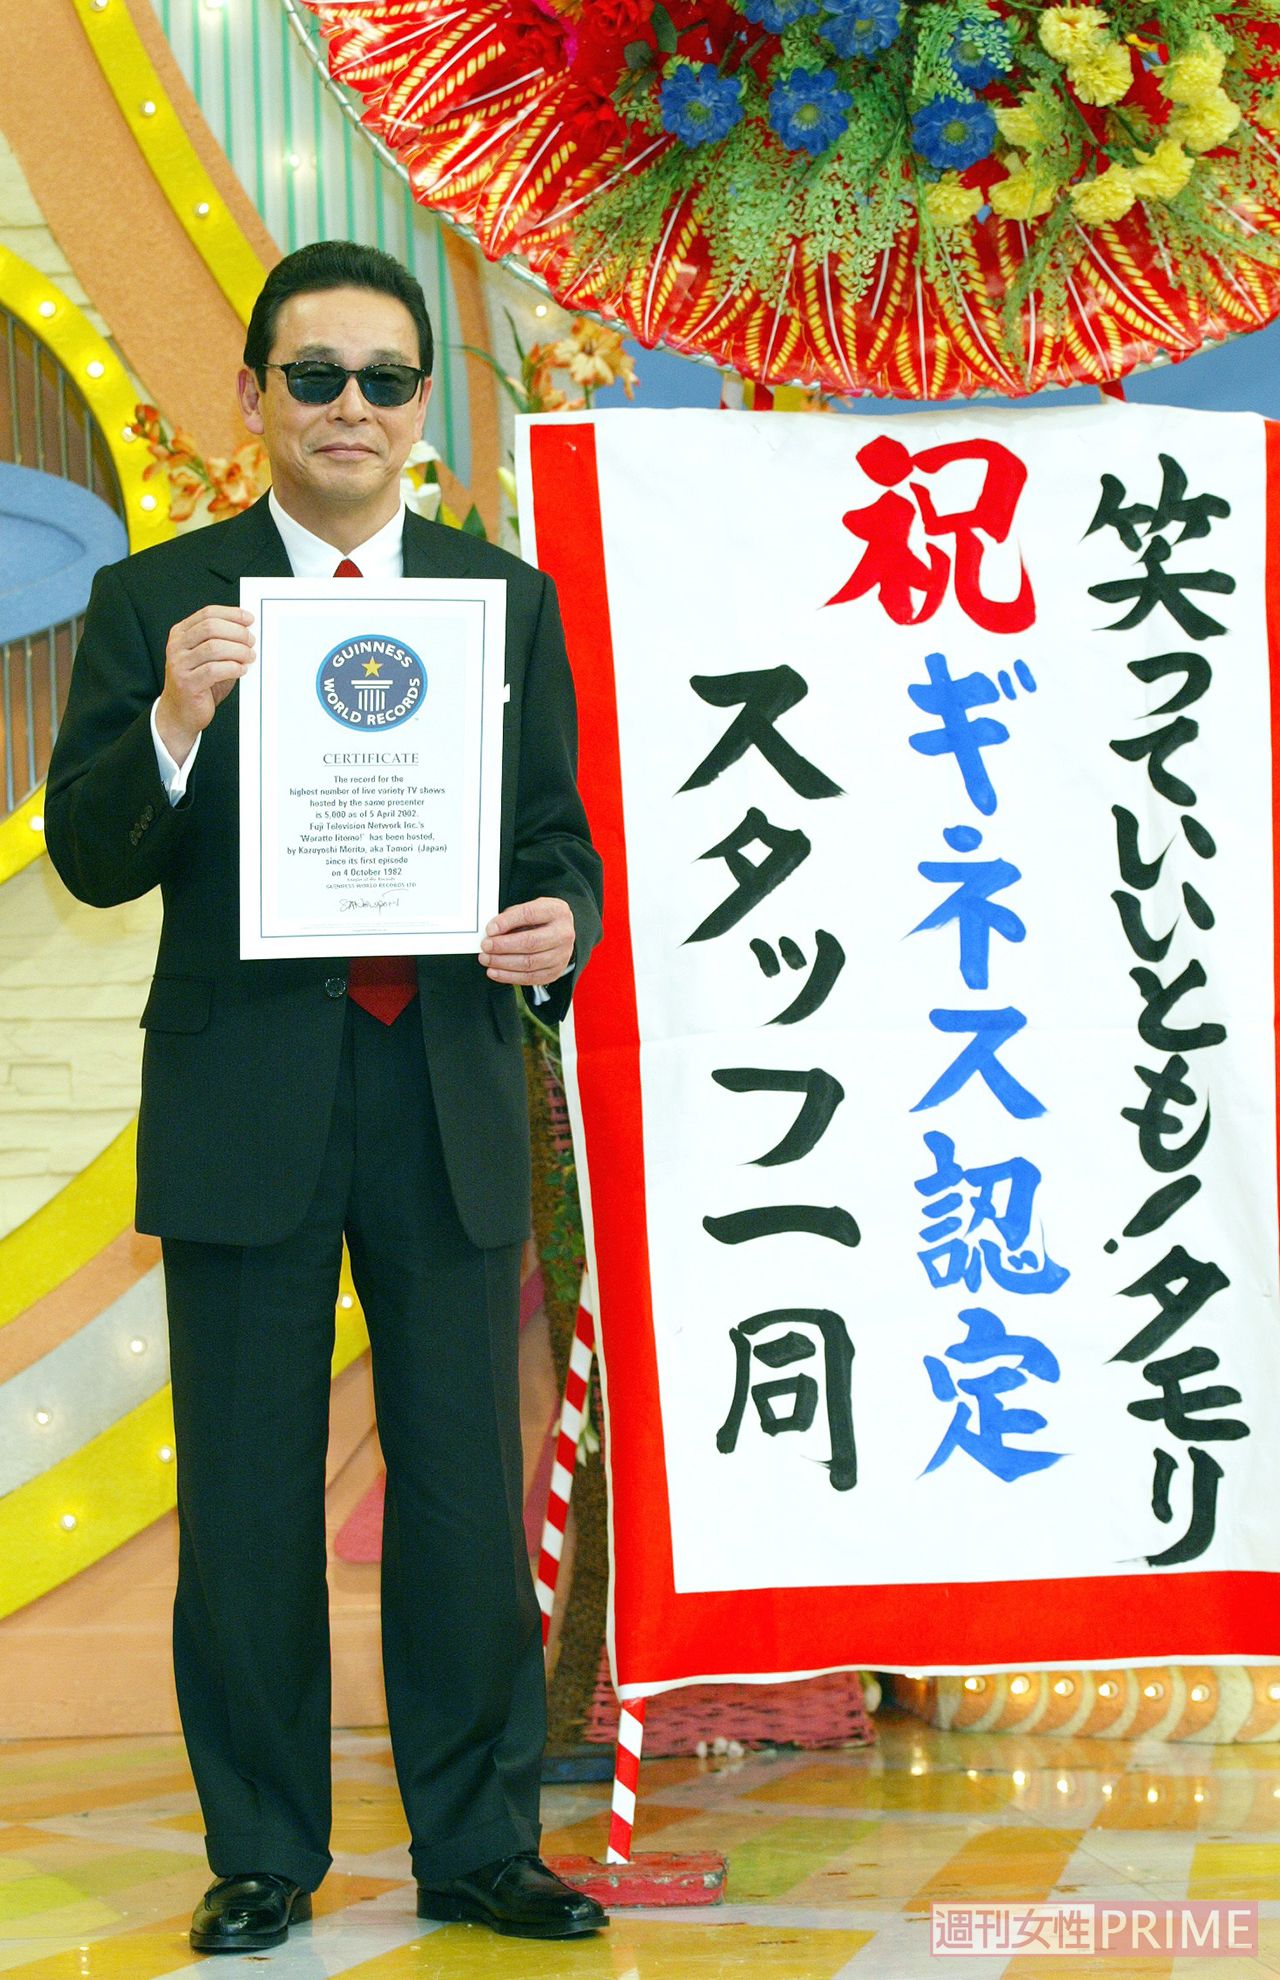 GUINNESS
WORLD RECORDS
CERTIFICATE
The record for the
highest number of live variety TV shows
hosted by the same presenter
is 5,000 as of 5 April 2002.
Fuji Television Network Inc.'s
'Waratte Iitomo!' has been hosted,
by Kazuyoshi Morita, aka Tamori (Japan)
since its first episode
on 4 October 1982
GUINNESS WORLD RECORDS LTD
笑っていいとも!タモリ
祝ギネス認定
スタッフ一同
週刊女性PRIME